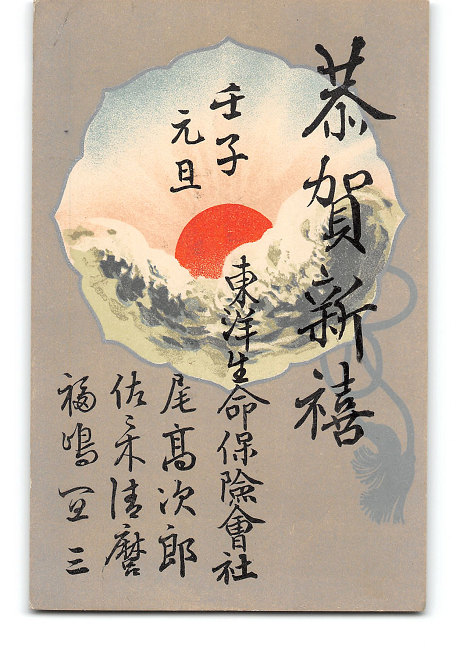 恭賀新禧
壬子
元旦
東洋生命保險會社
尾高次郎
佐々木清麿
福嶋宜三